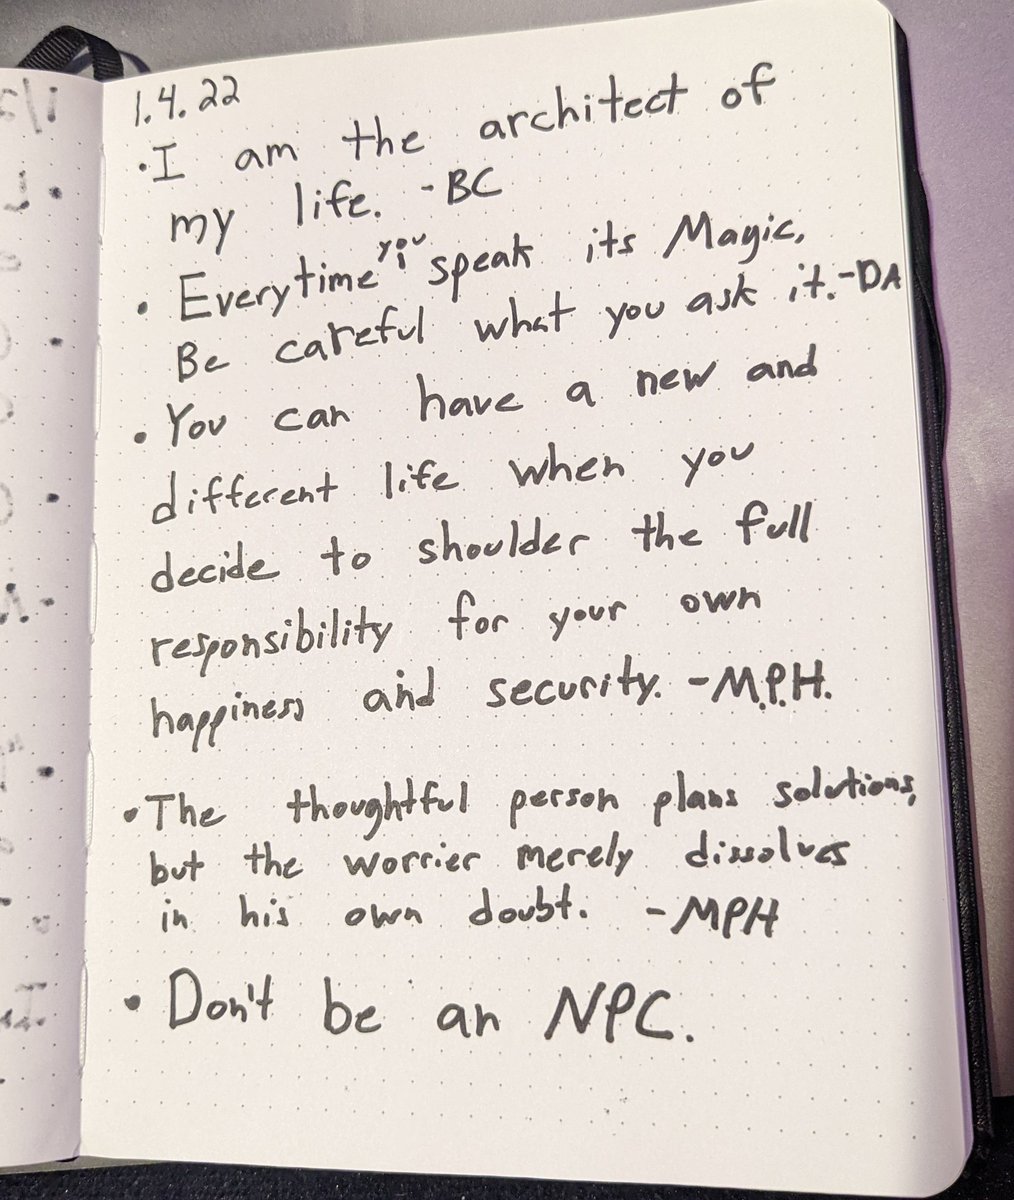 1.4.22
• I am the architect of
my life. - BC
• Everytime you speak its Magic.
Be careful what you ask it. - DA
• You can have a new and
different life when you
decide to shoulder the full
responsibility for your own
happiness and security. - M.P.H.
• The thoughtful person plans solutions,
but the worrier merely dissolves
in his own doubt. - MPH
• Don't be an NPC.